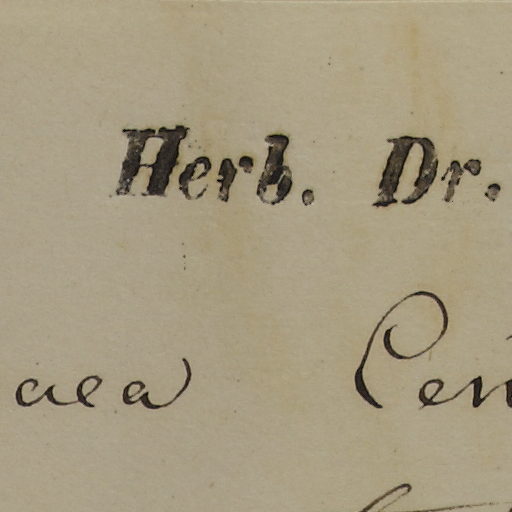 Herb. Dr.
aea Cen